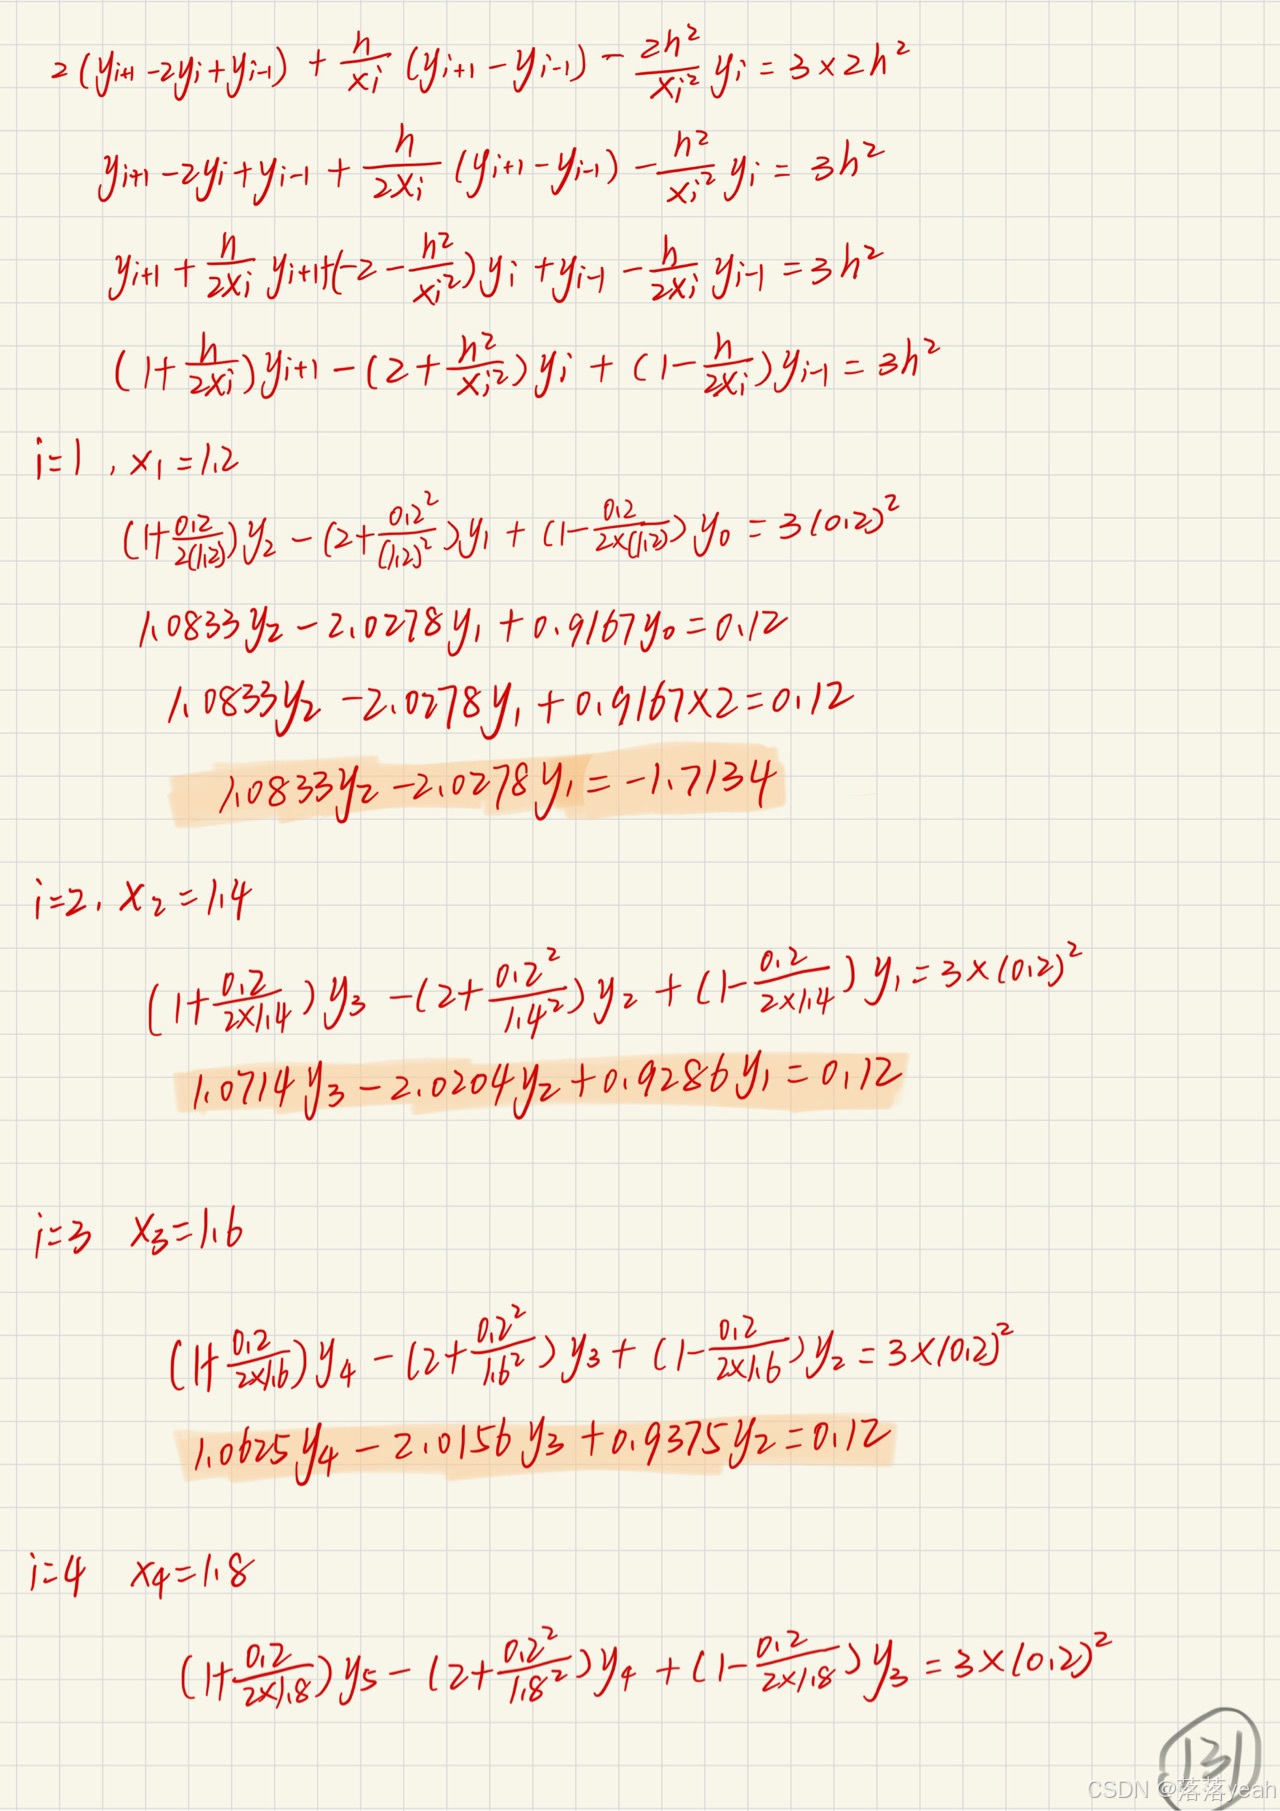 2(yᵢ₊₁ - 2yᵢ + yᵢ₋₁) + h/xᵢ (yᵢ₊₁ - yᵢ₋₁) - 2h²/xᵢ² yᵢ = 3×2h²
yᵢ₊₁ - 2yᵢ + yᵢ₋₁ + h/2xᵢ (yᵢ₊₁ - yᵢ₋₁) - h²/xᵢ² yᵢ = 3h²
yᵢ₊₁ + h/2xᵢ yᵢ₊₁ + (-2 - h²/xᵢ²)yᵢ + yᵢ₋₁ - h/2xᵢ yᵢ₋₁ = 3h²
(1 + h/2xᵢ)yᵢ₊₁ - (2 + h²/xᵢ²)yᵢ + (1 - h/2xᵢ)yᵢ₋₁ = 3h²
i=1, x₁=1.2
(1 + 0.2/2(1.2))y₂ - (2 + 0.2²/(1.2)²)y₁ + (1 - 0.2/2×(1.2))y₀ = 3(0.2)²
1.0833y₂ - 2.0278y₁ + 0.9167y₀ = 0.12
1.0833y₂ - 2.0278y₁ + 0.9167×2 = 0.12
1.0833y₂ - 2.0278y₁ = -1.7134
i=2, x₂=1.4
(1 + 0.2/2×1.4)y₃ - (2 + 0.2²/1.4²)y₂ + (1 - 0.2/2×1.4)y₁ = 3×(0.2)²
1.0714y₃ - 2.0204y₂ + 0.9286y₁ = 0.12
i=3 x₃=1.6
(1 + 0.2/2×1.6)y₄ - (2 + 0.2²/1.6²)y₃ + (1 - 0.2/2×1.6)y₂ = 3×(0.2)²
1.0625y₄ - 2.0156y₃ + 0.9375y₂ = 0.12
i=4 x₄=1.8
(1 + 0.2/2×1.8)y₅ - (2 + 0.2²/1.8²)y₄ + (1 - 0.2/2×1.8)y₃ = 3×(0.2)²
131
CSDN @落落yeah